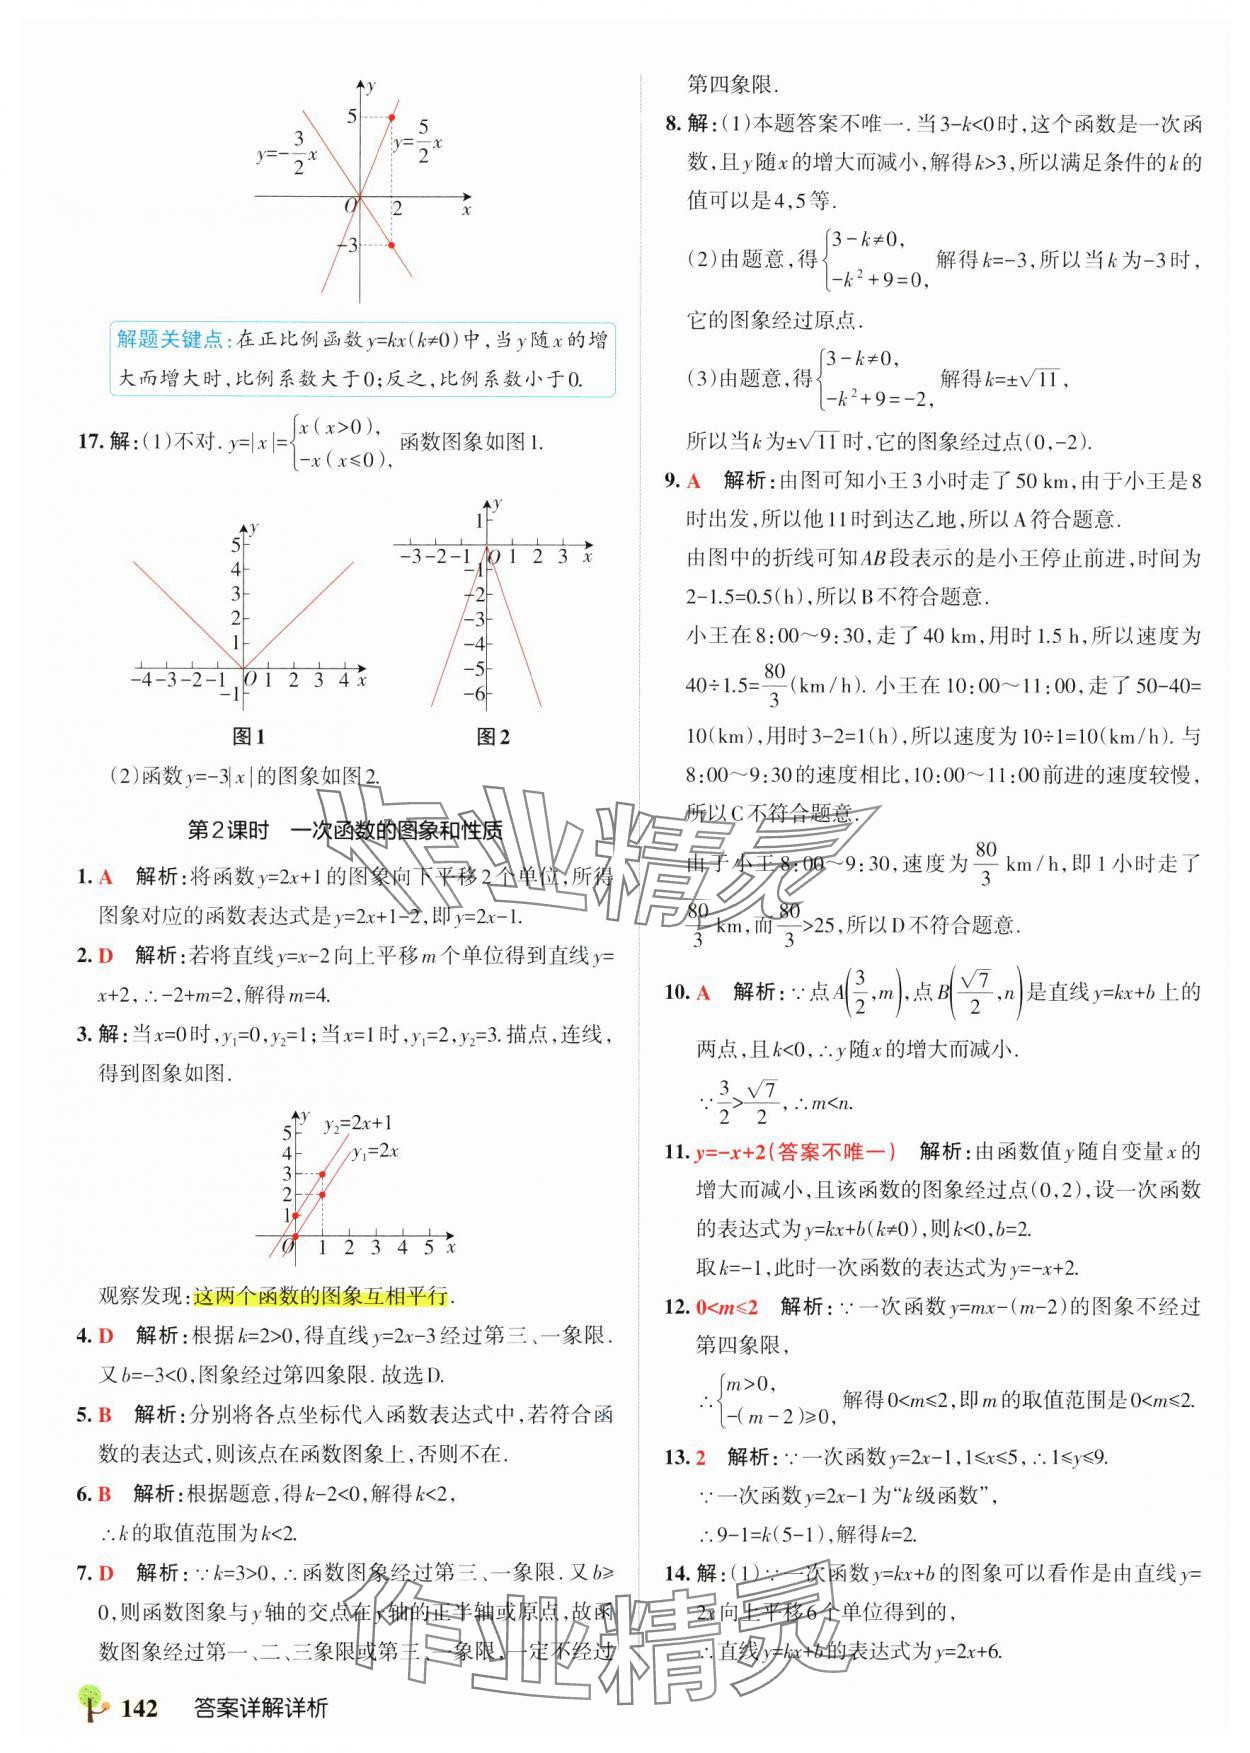 y
5
y=-3/2x
y=5/2x
O 2 x
-3
解题关键点:在正比例函数y=kx(k≠0)中,当y随x的增
大而增大时,比例系数大于0;反之,比例系数小于0.
17.解:(1)不对.y=|x|={x(x>0), -x(x≤0), 函数图象如图1.
y
5
4
3
2
1
-4-3-2-1 O 1 2 3 4 x
-1
图1
y
1
-3-2-1 O 1 2 3 x
-1
-2
-3
-4
-5
-6
图2
(2)函数y=-3|x|的图象如图2.
第2课时 一次函数的图象和性质
1. A 解析:将函数y=2x+1的图象向下平移2个单位,所得
图象对应的函数表达式是y=2x+1-2,即y=2x-1.
2. D 解析:若将直线y=x-2向上平移m个单位得到直线y=
x+2,∴-2+m=2,解得m=4.
3.解:当x=0时,y₁=0,y₂=1;当x=1时,y₁=2,y₂=3.描点,连线,
得到图象如图.
y
y₂=2x+1
y₁=2x
5
4
3
2
1
O 1 2 3 4 5 x
观察发现:这两个函数的图象互相平行.
4. D 解析:根据k=2>0,得直线y=2x-3经过第三、一象限.
又b=-3<0,图象经过第四象限.故选D.
5. B 解析:分别将各点坐标代入函数表达式中,若符合函
数的表达式,则该点在函数图象上,否则不在.
6. B 解析:根据题意,得k-2<0,解得k<2,
∴k的取值范围为k<2.
7. D 解析:∵k=3>0,∴函数图象经过第三、一象限.又b≥
0,则函数图象与y轴的交点在y轴的正半轴或原点,故函
数图象经过第一、二、三象限或第三、一象限,一定不经过
142 答案详解详析
第四象限.
8.解:(1)本题答案不唯一.当3-k<0时,这个函数是一次函
数,且y随x的增大而减小,解得k>3,所以满足条件的k的
值可以是4,5等.
(2)由题意,得{3-k≠0, -k²+9=0, 解得k=-3,所以当k为-3时,
它的图象经过原点.
(3)由题意,得{3-k≠0, -k²+9=-2, 解得k=±√11,
所以当k为±√11时,它的图象经过点(0,-2).
9. A 解析:由图可知小王3小时走了50 km,由于小王是8
时出发,所以他11时到达乙地,所以A符合题意.
由图中的折线可知AB段表示的是小王停止前进,时间为
2-1.5=0.5(h),所以B不符合题意.
小王在8:00~9:30,走了40 km,用时1.5 h,所以速度为
40÷1.5=80/3(km/h).小王在10:00~11:00,走了50-40=
10(km),用时3-2=1(h),所以速度为10÷1=10(km/h).与
8:00~9:30的速度相比,10:00~11:00前进的速度较慢,
所以C不符合题意.
由于小王8:00~9:30,速度为80/3 km/h,即1小时走了
80/3 km,而80/3>25,所以D不符合题意.
10. A 解析:∵点A(3/2,m),点B(√7/2,n)是直线y=kx+b上的
两点,且k<0,∴y随x的增大而减小.
∵3/2>√7/2,∴m<n.
11. y=-x+2(答案不唯一) 解析:由函数值y随自变量x的
增大而减小,且该函数的图象经过点(0,2),设一次函数
的表达式为y=kx+b(k≠0),则k<0,b=2.
取k=-1,此时一次函数的表达式为y=-x+2.
12. 0<m≤2 解析:∵一次函数y=mx-(m-2)的图象不经过
第四象限,
∴{m>0, -(m-2)≥0, 解得0<m≤2,即m的取值范围是0<m≤2.
13. 2 解析:∵一次函数y=2x-1,1≤x≤5,∴1≤y≤9.
∵一次函数y=2x-1为“k级函数”,
∴9-1=k(5-1),解得k=2.
14.解:(1)∵一次函数y=kx+b的图象可以看作是由直线y=
2x向上平移6个单位得到的,
∴直线y=kx+b的表达式为y=2x+6.
作业精灵
作业精灵